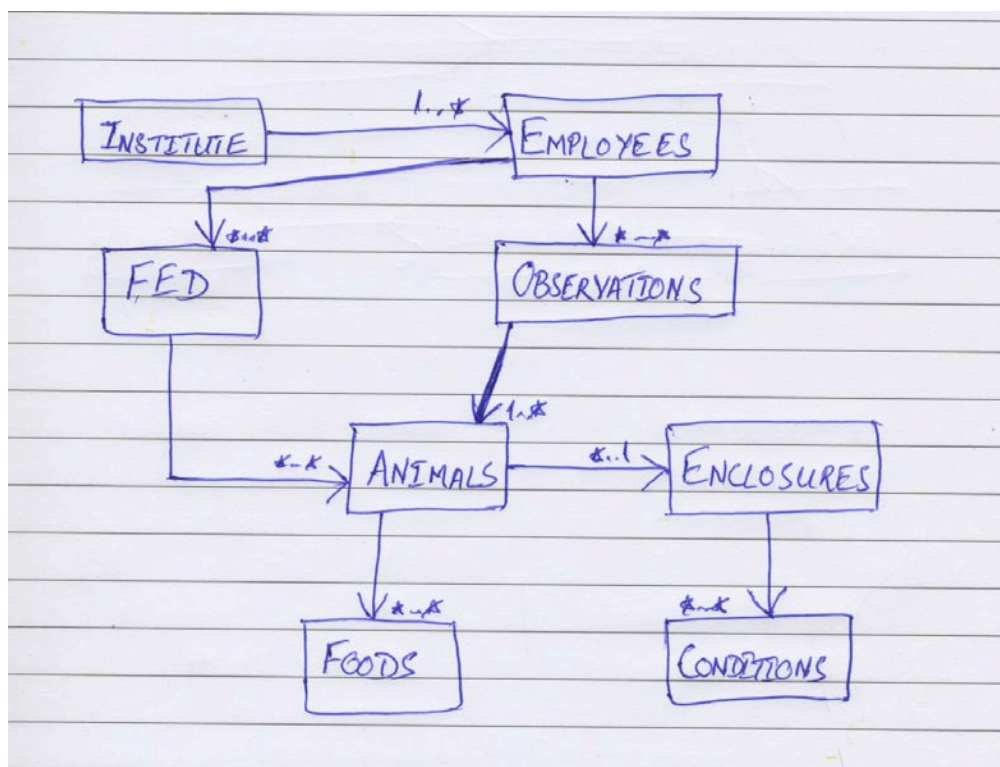 1..*
INSTITUTE
EMPLOYEES
*..*
*..*
FED
OBSERVATIONS
1..*
*..*
ANIMALS
*..1
ENCLOSURES
*..*
*..*
FOODS
CONDITIONS